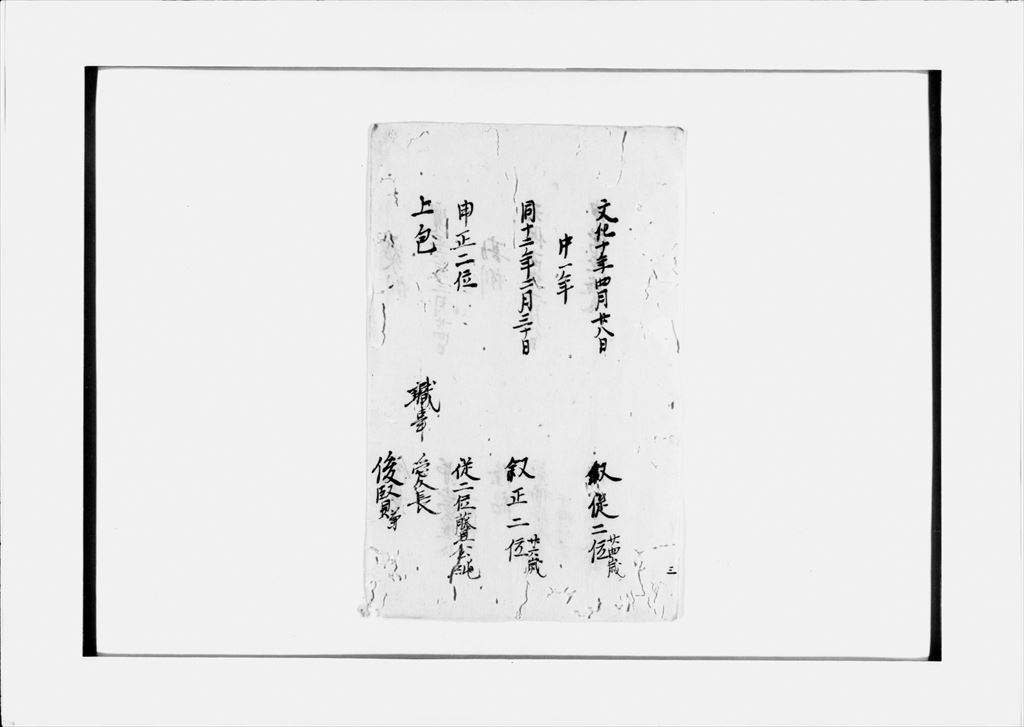 文化十年四月廿八日　叙従二位 廿四歳
中一年
同十二年二月三十日　叙正二位 廿六歳
申正二位　従二位藤公純
上包　職事　愛長
俊賢
三